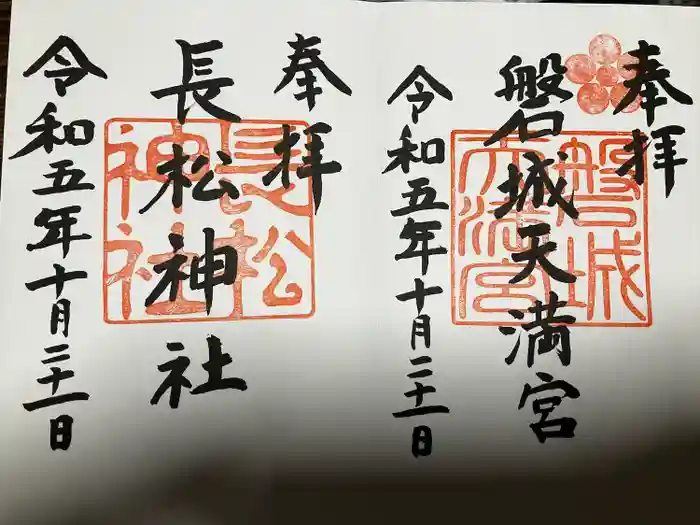 奉拝
磐城天満宮
令和五年十月二十一日
磐城
天満宮
奉拝
長松神社
令和五年十月二十一日
長松
神社